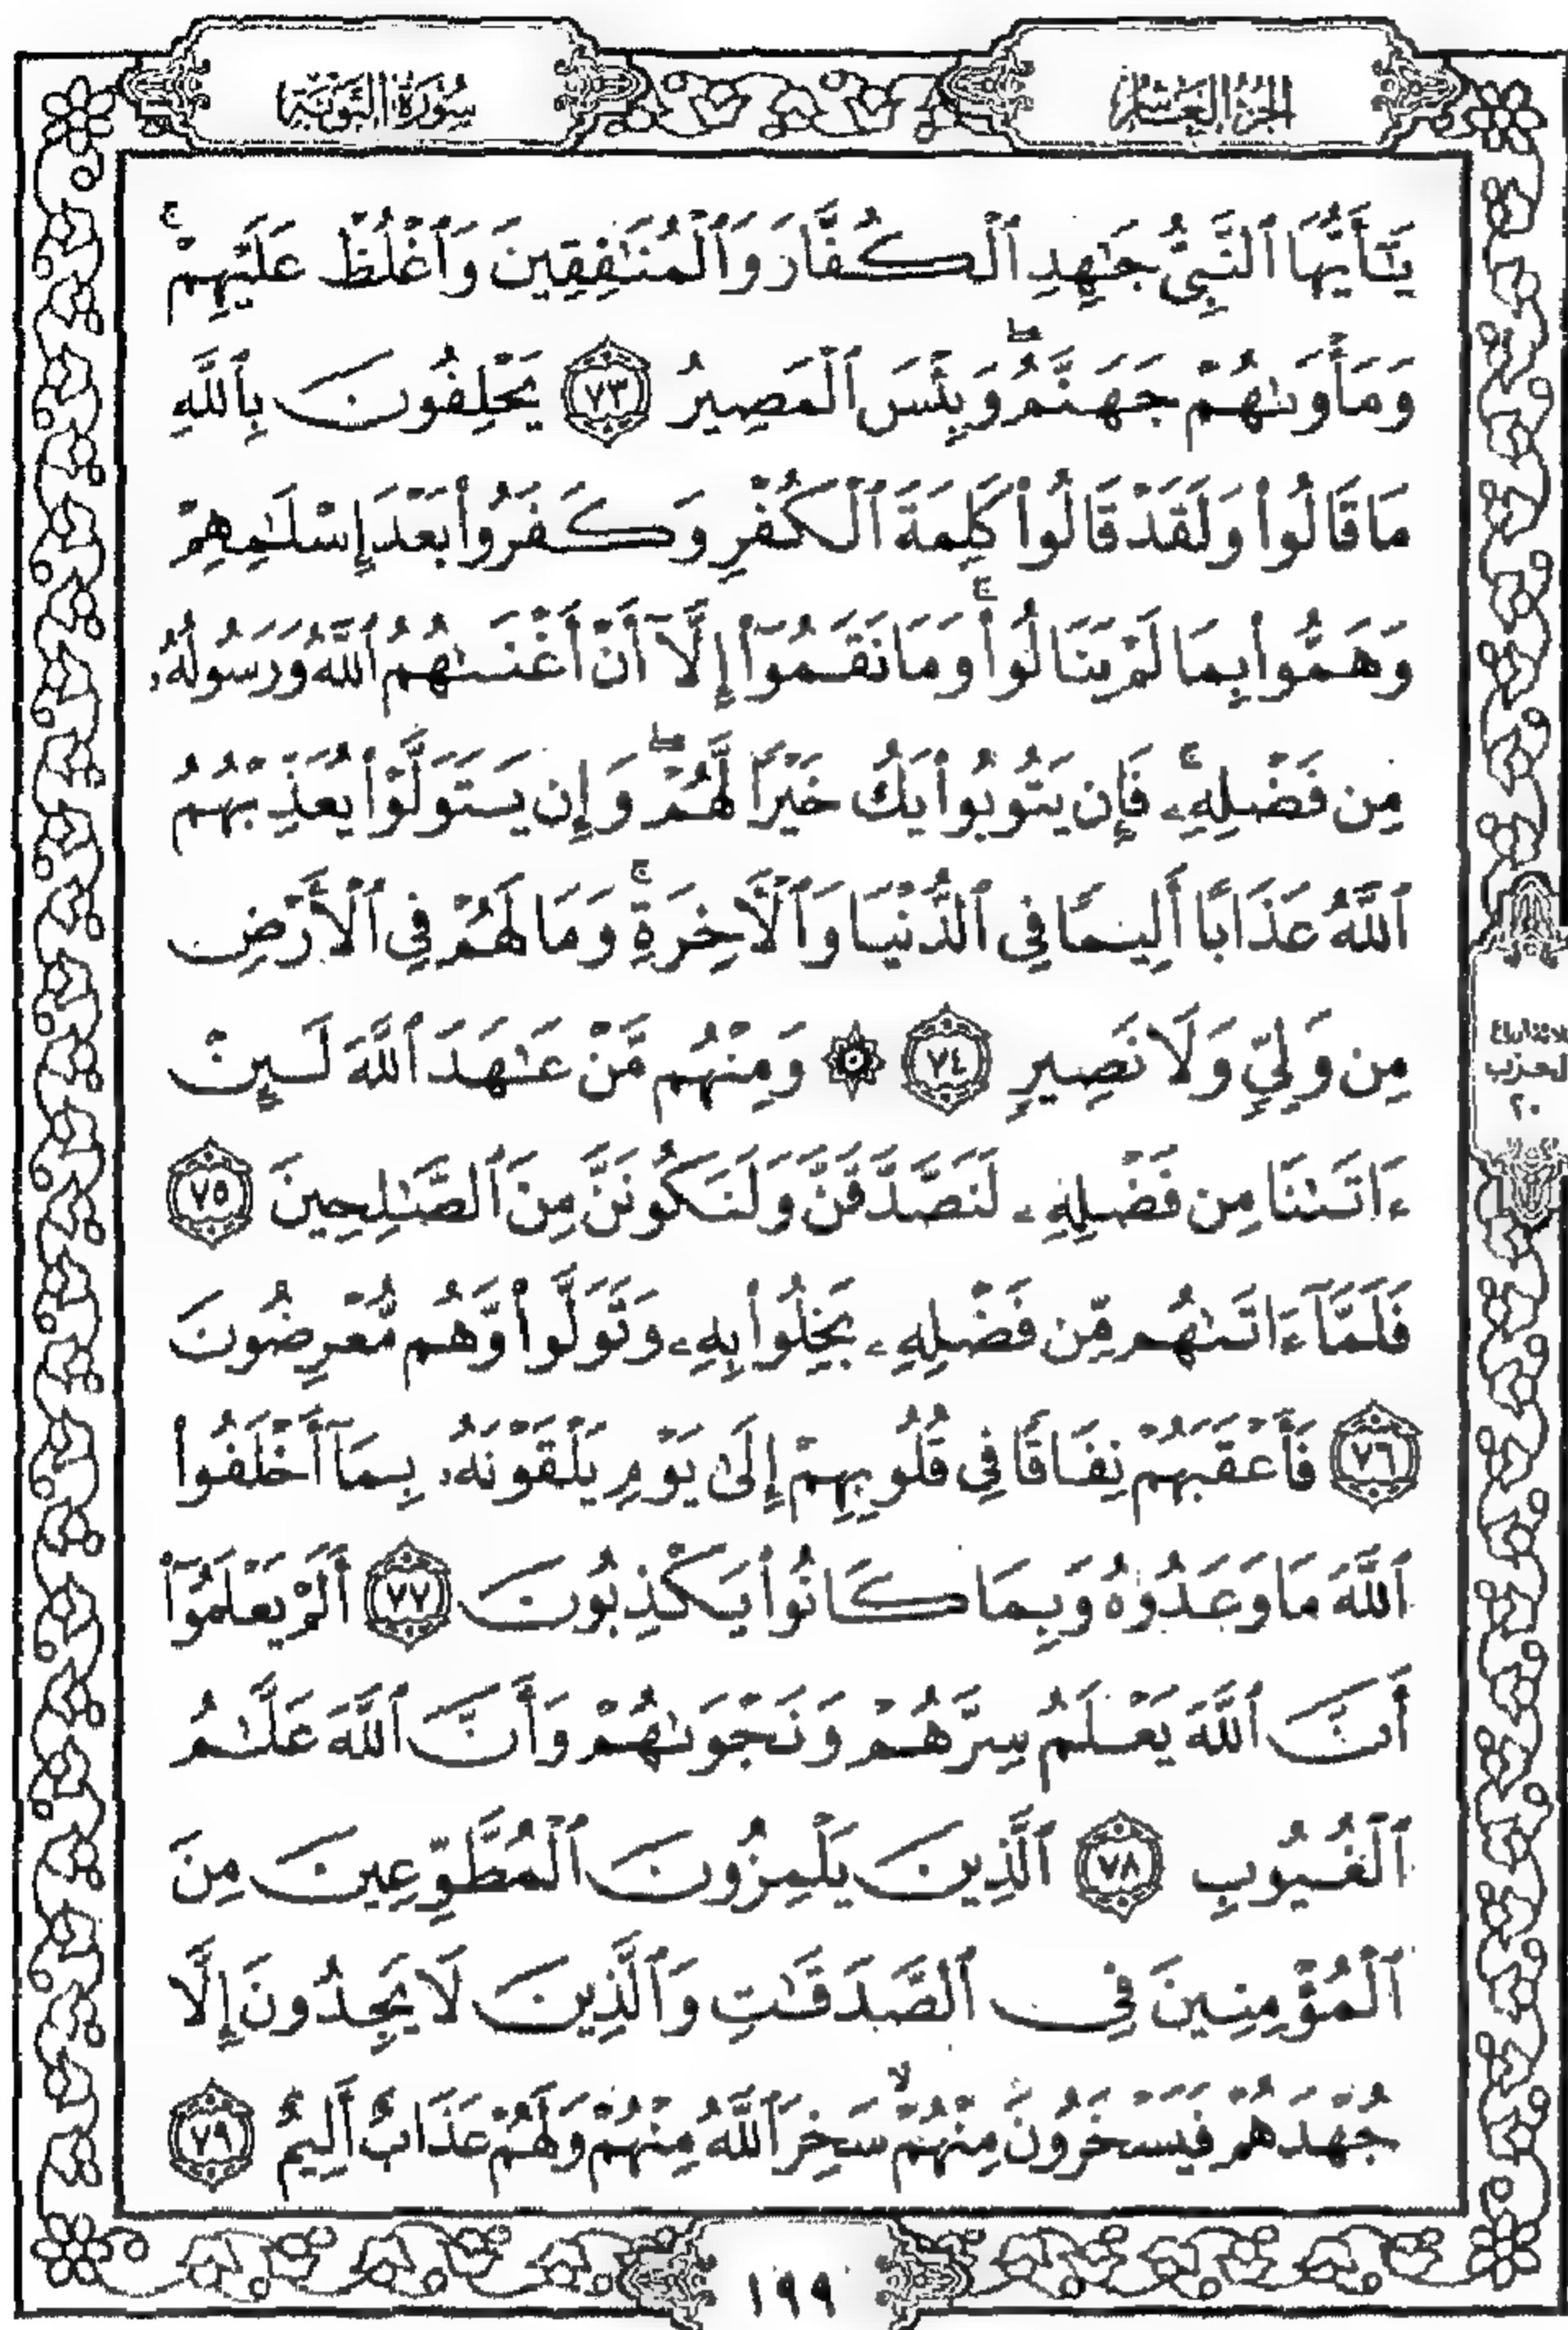 الجزء العاشر
سورة التوبة
يَٰٓأَيُّهَا ٱلنَّبِيُّ جَٰهِدِ ٱلْكُفَّارَ وَٱلْمُنَٰفِقِينَ وَٱغْلُظْ عَلَيْهِمْۚ
وَمَأْوَىٰهُمْ جَهَنَّمُۖ وَبِئْسَ ٱلْمَصِيرُ ٧٣ يَحْلِفُونَ بِٱللَّهِ
مَا قَالُوا۟ وَلَقَدْ قَالُوا۟ كَلِمَةَ ٱلْكُفْرِ وَكَفَرُوا۟ بَعْدَ إِسْلَٰمِهِمْ
وَهَمُّوا۟ بِمَا لَمْ يَنَالُوا۟ۚ وَمَا نَقَمُوٓا۟ إِلَّآ أَنْ أَغْنَىٰهُمُ ٱللَّهُ وَرَسُولُهُۥ
مِن فَضْلِهِۦۚ فَإِن يَتُوبُوا۟ يَكُ خَيْرًا لَّهُمْۖ وَإِن يَتَوَلَّوْا۟ يُعَذِّبْهُمُ
ٱللَّهُ عَذَابًا أَلِيمًا فِى ٱلدُّنْيَا وَٱلْءَاخِرَةِۚ وَمَا لَهُمْ فِى ٱلْأَرْضِ
مِن وَلِىٍّ وَلَا نَصِيرٍ ٧٤ ۞ وَمِنْهُم مَّنْ عَٰهَدَ ٱللَّهَ لَئِنْ
ءَاتَىٰنَا مِن فَضْلِهِۦ لَنَصَّدَّقَنَّ وَلَنَكُونَنَّ مِنَ ٱلصَّٰلِحِينَ ٧٥
فَلَمَّآ ءَاتَىٰهُم مِّن فَضْلِهِۦ بَخِلُوا۟ بِهِۦ وَتَوَلَّوا۟ وَّهُم مُّعْرِضُونَ
٧٦ فَأَعْقَبَهُمْ نِفَاقًا فِى قُلُوبِهِمْ إِلَىٰ يَوْمِ يَلْقَوْنَهُۥ بِمَآ أَخْلَفُوا۟
ٱللَّهَ مَا وَعَدُوهُ وَبِمَا كَانُوا۟ يَكْذِبُونَ ٧٧ أَلَمْ يَعْلَمُوٓا۟
أَنَّ ٱللَّهَ يَعْلَمُ سِرَّهُمْ وَنَجْوَىٰهُمْ وَأَنَّ ٱللَّهَ عَلَّٰمُ
ٱلْغُيُوبِ ٧٨ ٱلَّذِينَ يَلْمِزُونَ ٱلْمُطَّوِّعِينَ مِنَ
ٱلْمُؤْمِنِينَ فِى ٱلصَّدَقَٰتِ وَٱلَّذِينَ لَا يَجِدُونَ إِلَّا
جُهْدَهُمْ فَيَسْخَرُونَ مِنْهُمْۙ سَخِرَ ٱللَّهُ مِنْهُمْ وَلَهُمْ عَذَابٌ أَلِيمٌ ٧٩
الحزب
٢٠
١٩٩